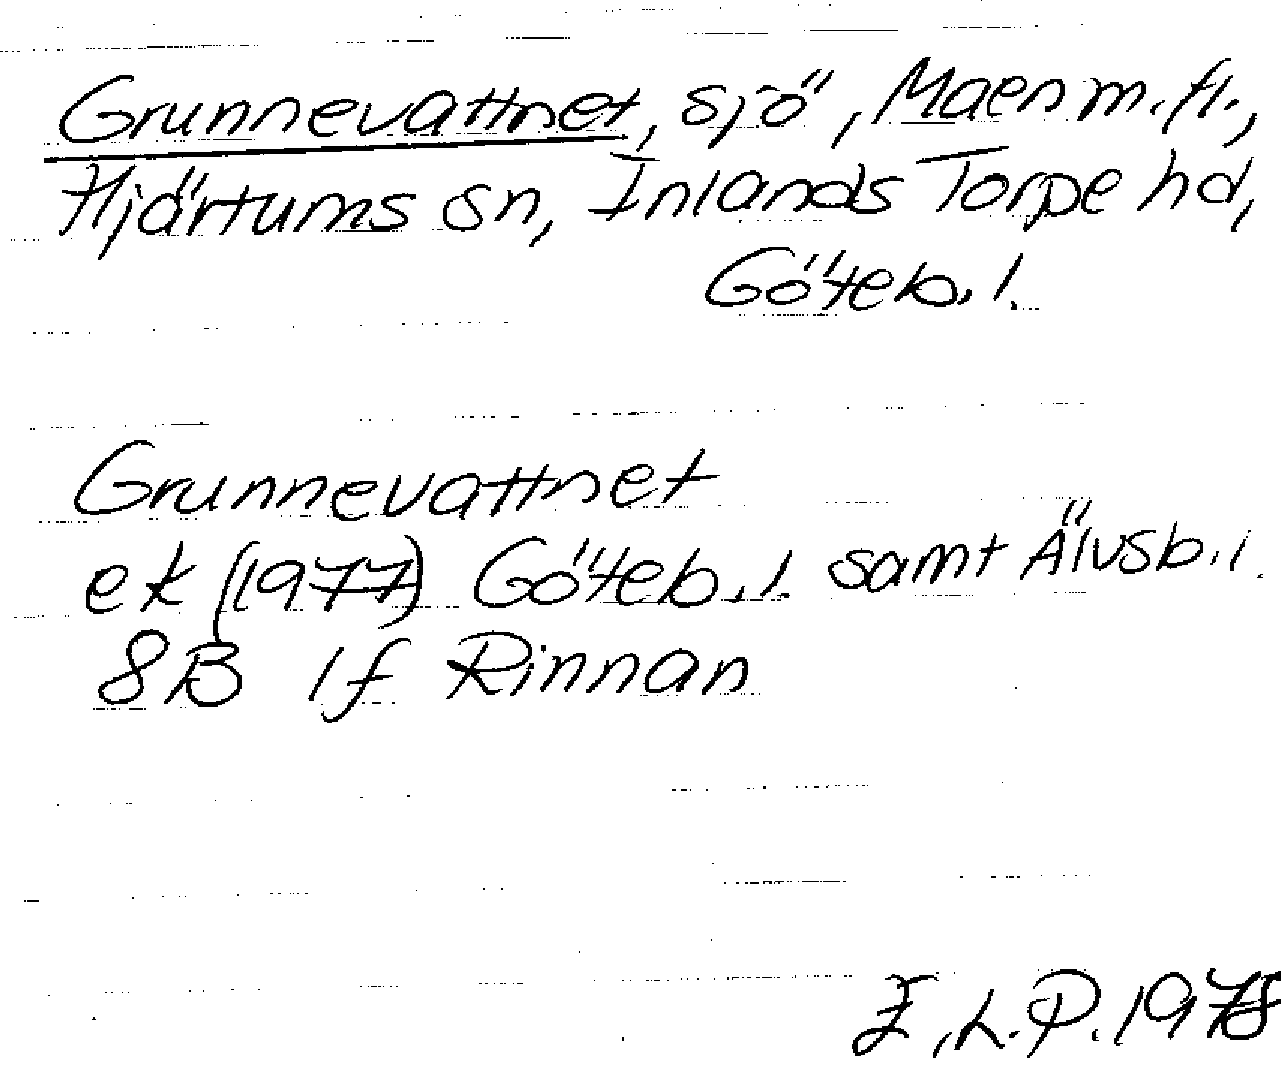 Grunnevattnet, sjö, Maen m.fl.,
Hjärtums sn, Inlands Torpe hd,
Göteb.l.
Grunnevattnet
ek (1977) Göteb.l. samt Älvsb.l.
8B 1f Rinnan
I.L.P. 1978